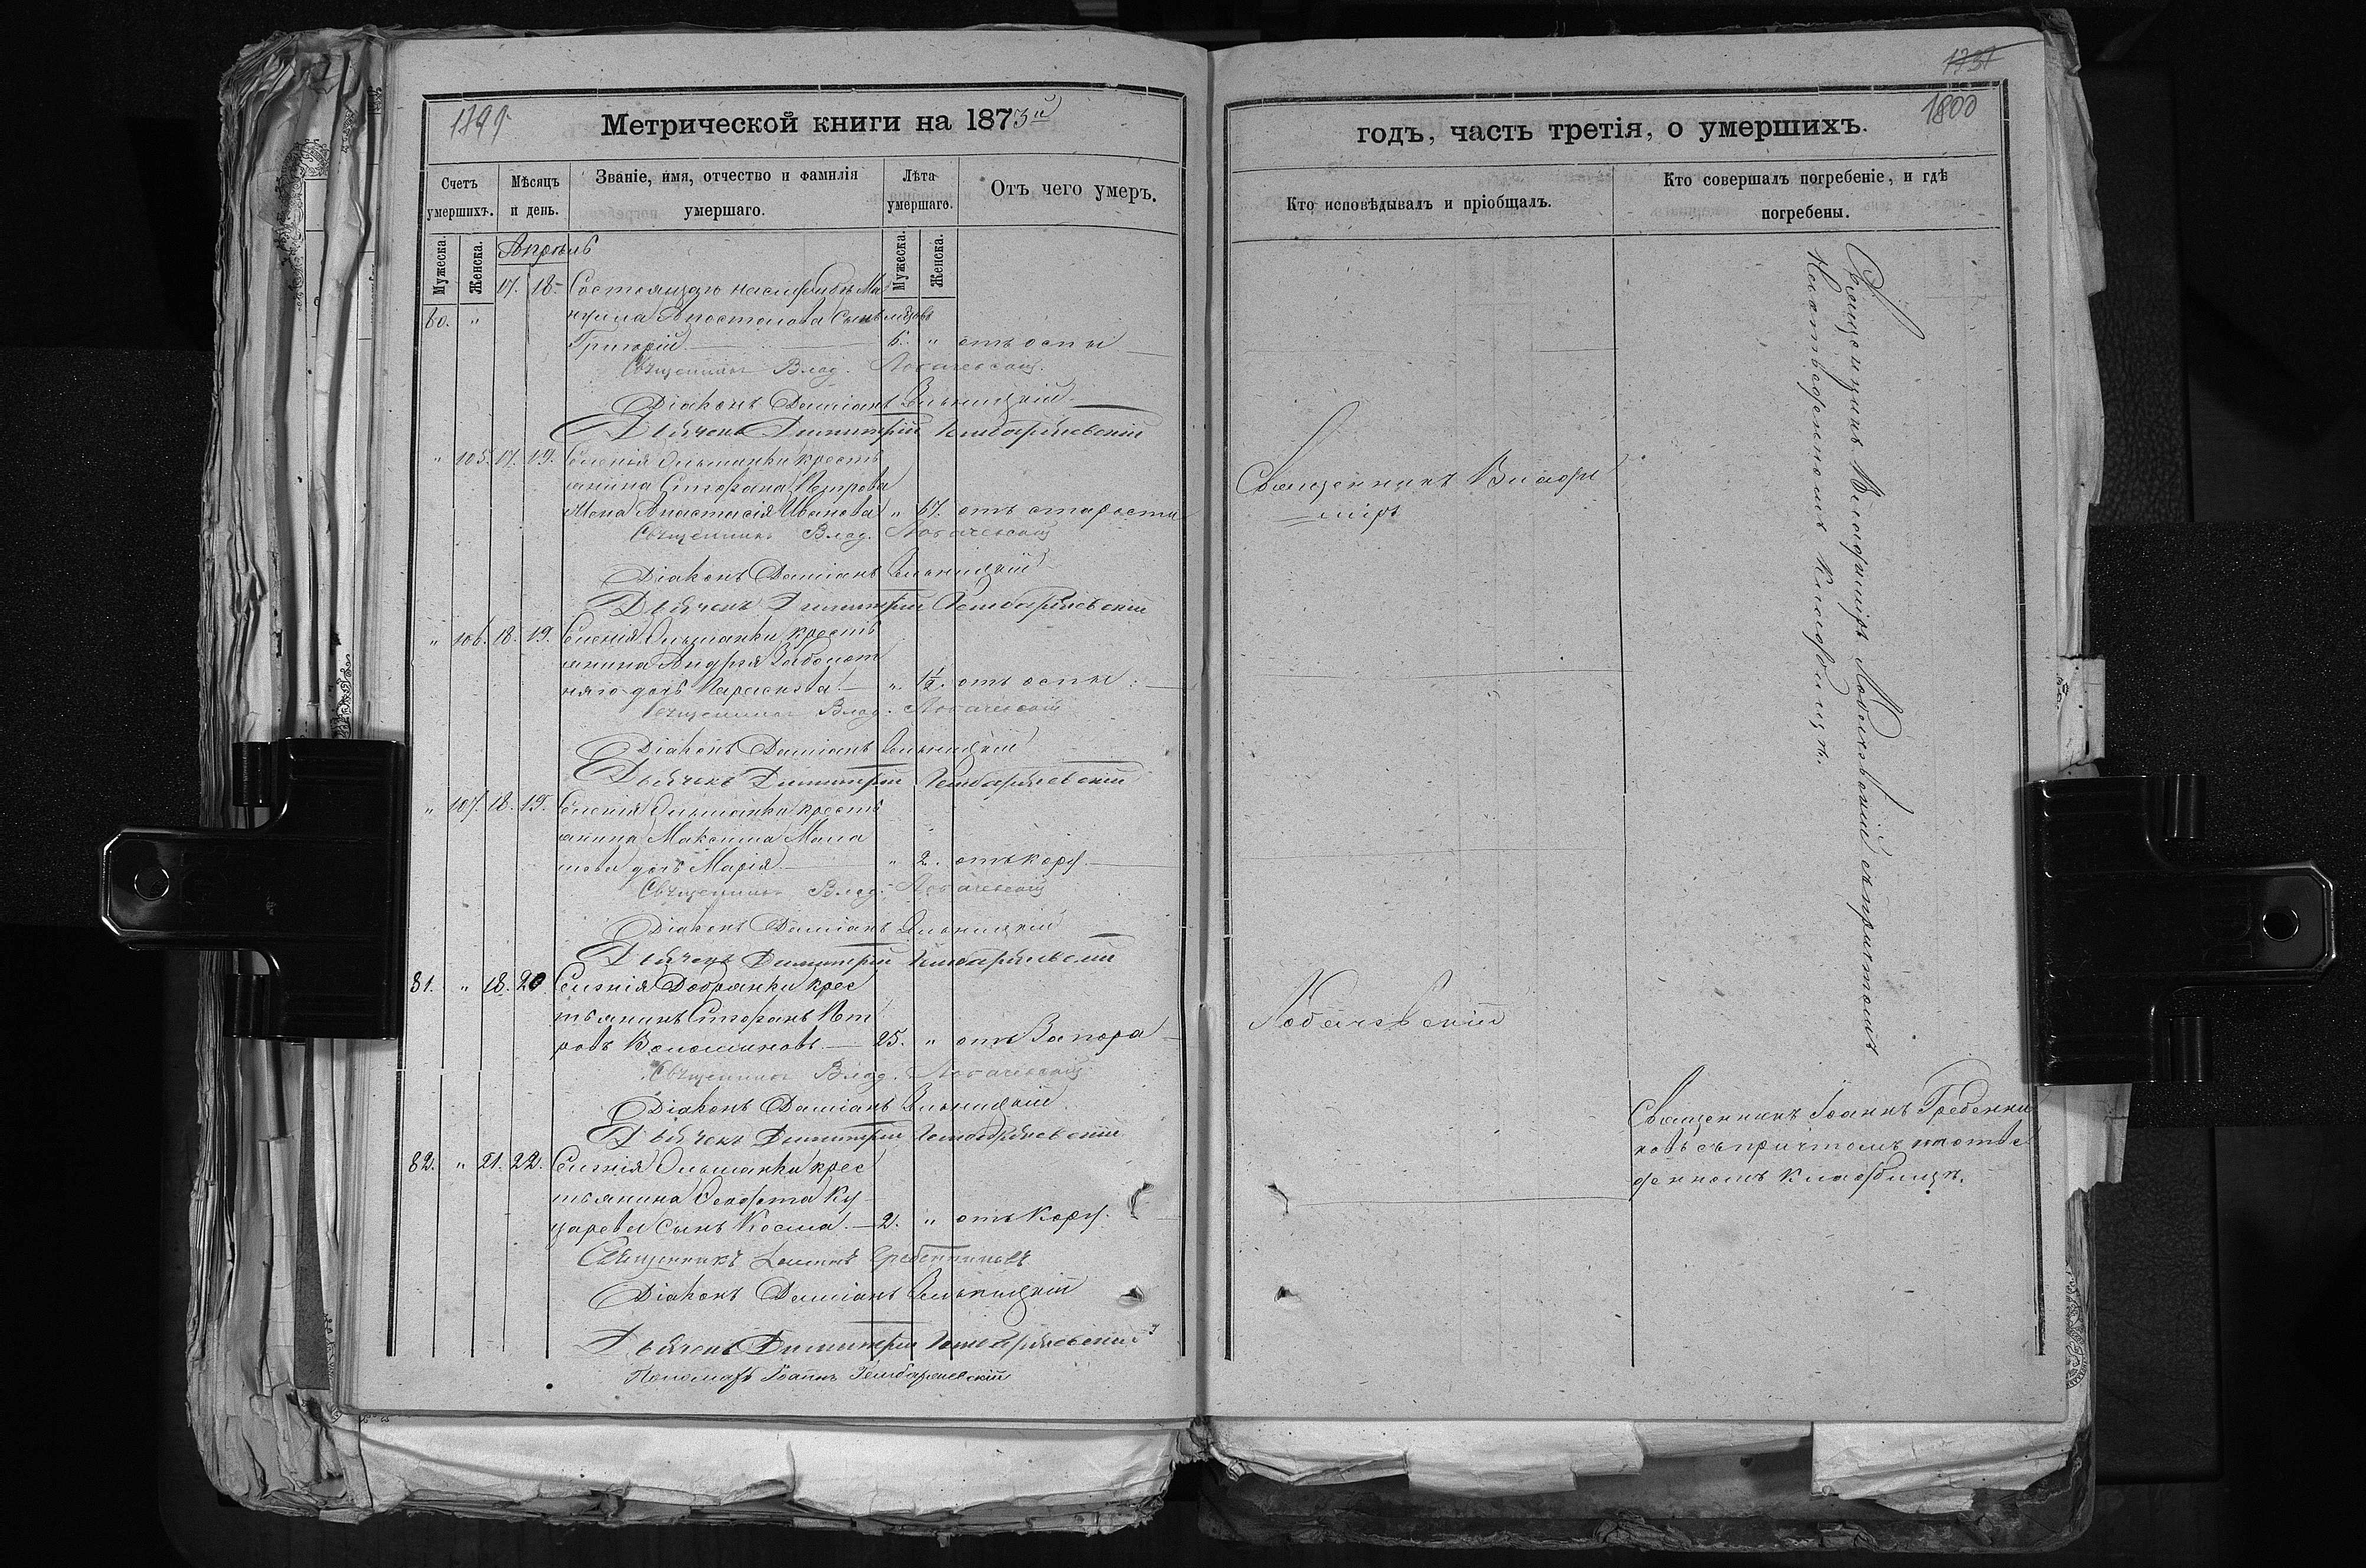 1799
Метрической книги на 1873й
Счетъ умершихъ.
Мѣсяцъ и день.
Званіе, имя, отчество и фамилія умершаго.
Лѣта умершаго.
Отъ чего умеръ.
Мужеска.
Женска.
Мужеска.
Женска.
Апрѣль
80. " 17. 18. Состоящаго на службѣ Ма
нуила Апостолова сынъ мѣсяц
Григорій 6. " отъ оспы
Священникъ Влад. Лобачевскій
Діаконъ Даміанъ
Дьячекъ Димитрій
" 105. 17. 19. Селенія Ольшанки кресть
янина Стефана Петрова
жена Анастасія Иванова " 67. отъ старости
Священникъ Влад. Лобачевскій
Діаконъ Даміанъ
Дьячекъ Димитрій
" 106. 18. 19. Селенія Ольшанки кресть
янина Андрея Заболот
няго дочь Параскева " 1½. отъ оспы
Священникъ Влад. Лобачевскій
Діаконъ Даміанъ
Дьячекъ Димитрій
" 107. 18. 19. Селенія Ольшанки кресть
янина Максима
дочь Марія " 2. отъ кору
Священникъ Влад. Лобачевскій
Діаконъ Даміанъ
Дьячекъ Димитрій
81. " 18. 20. Селенія Добрянки крес
тьянинъ Стефанъ Пет
ровъ 25. " отъ Запора
Священникъ Влад. Лобачевскій
Діаконъ Даміанъ
Дьячекъ Димитрій
82. " 21. 22. Селенія Ольшанки крес
тьянина Феодота Ку
царева сынъ Косма 2. " отъ Кору
Священникъ Іоаннъ Гребенниковъ
Діаконъ Даміанъ
Дьячекъ Димитрій
Пономарь Іоаннъ
1731
1800
годъ, часть третія, о умершихъ.
Кто исповѣдывалъ и пріобщалъ.
Кто совершалъ погребеніе, и гдѣ погребены.
Священникъ Влади
міръ
Лобачевскій
Священникъ Владиміръ Лобачевскій съ причтомъ
На отведенномъ кладбищѣ.
Священникъ Іоаннъ Гребенни
ковъ съ причтомъ на отве
денномъ кладбищѣ.